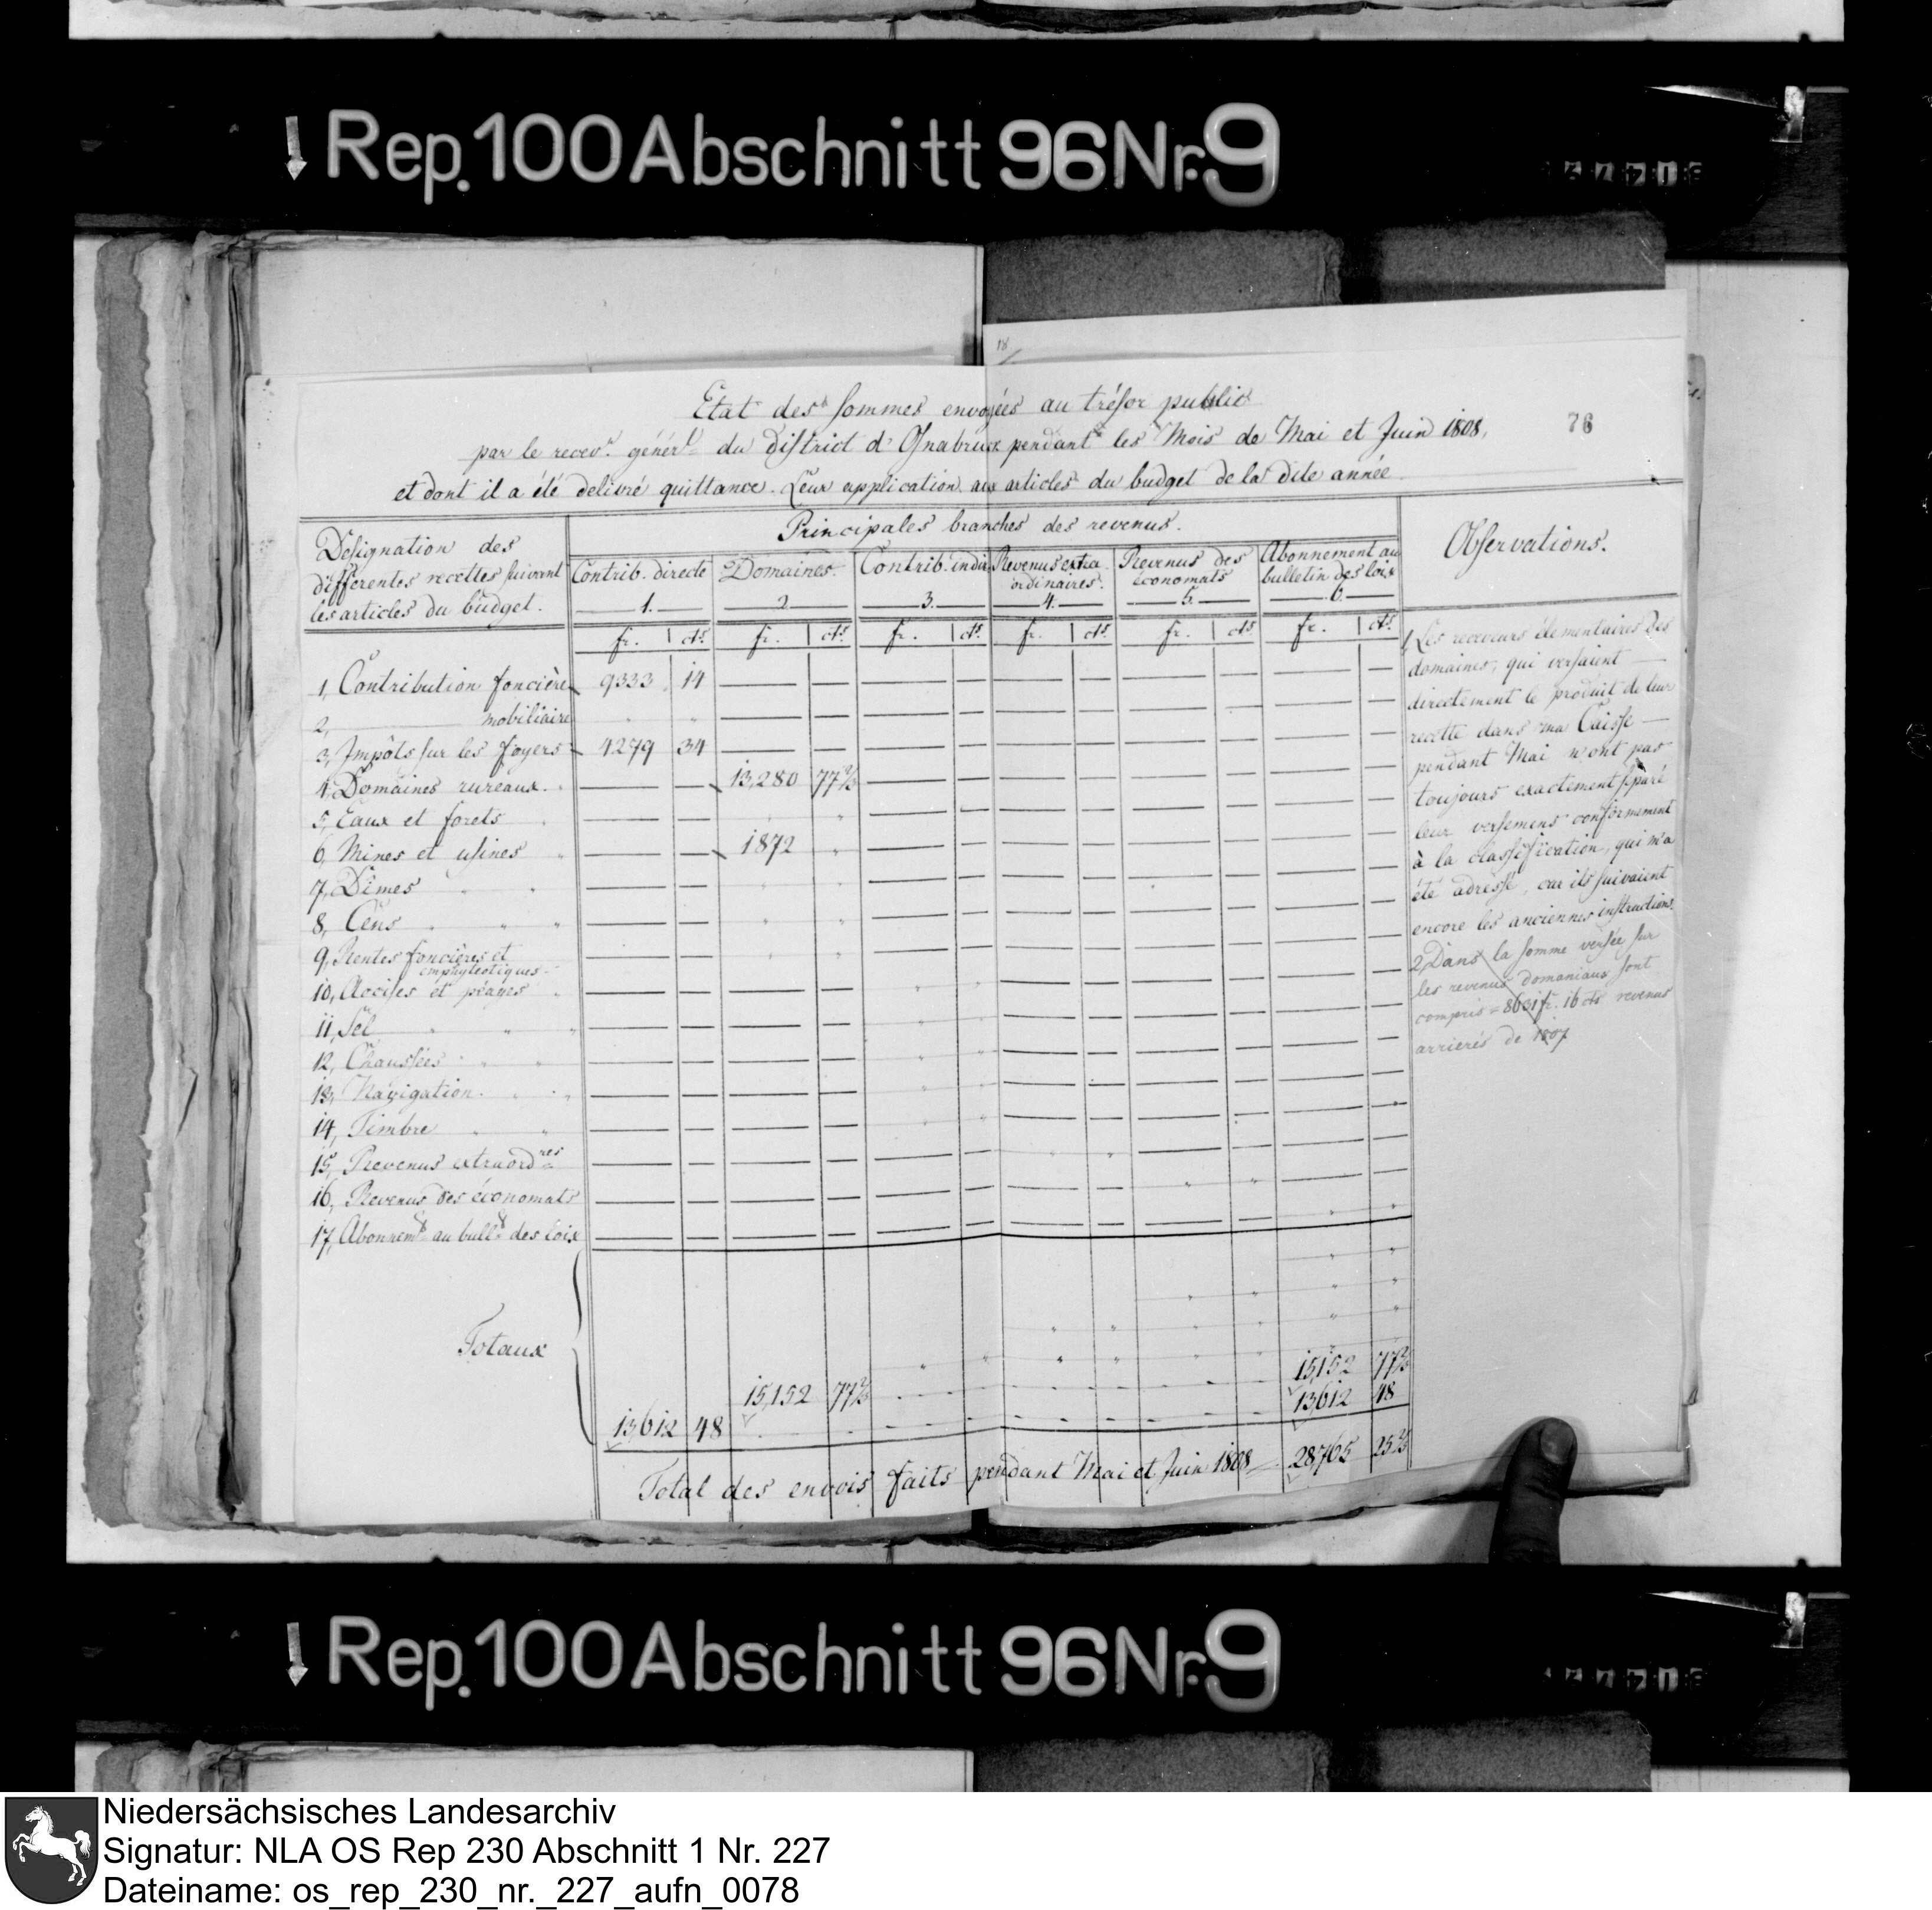 Rep. 100 Abschnitt 96 Nr. 9
18
Etat des sommes envoyées au trésor public
76
par le recev.r génér.l du district d'Osnabruck pendant les Mois de Mai et Juin 1808,
et dont il a été delivré quittance. Leur application aux articles du budget de la dite année
Désignation des
différentes recettes suivant
les articles du budget.
Principales branches des revenus.
Observations.
Contrib. directe
1.
Domaines.
2
Contrib. indir.
3.
Revenus extra
ordinaires.
4.
Revenus des
économats
5.
Abonnement au
bulletin des loix
6.
fr. cts. fr. cts. fr. cts. fr. cts. fr. cts. fr. cts.
1, Contribution foncière 9333 14
2, ——— mobiliaire
3, Impôts sur les foyers 4279 34
4, Domaines rureaux. 13,280 77 2/3
5, Eaux et forets
6, Mines et usines 1872
7, Dîmes
8, Cens
9, Rentes foncières et
emphyteotiques
10, Accises et péages
11, Sel
12, Chaussées
13, Navigation.
14, Timbre
15, Revenus extraord.res
16, Revenus des économats
17, Abonnem.t au bull.t des loix
1, Les receveurs élementaires des
domaines, qui versaient
directement le produit de leur
recette dans ma Caisse
pendant Mai n'ont pas
toujours exactement separé
leur versemens conformement
à la classification, qui m'a
été adressé, car ils suivaient
encore les anciennes instructions.
2, Dans la somme versée sur
les revenus domaniaux sont
compris = 8631 fr. 16 cts revenus
arrierés de 1807
Totaux
15,152 77 2/3
15,152 77 2/3
13,612 48
13,612 48
Total des envois faits pendant Mai et Juin 1808 28765 25 2/3
Rep. 100 Abschnitt 96 Nr. 9
Niedersächsisches Landesarchiv
Signatur: NLA OS Rep 230 Abschnitt 1 Nr. 227
Dateiname: os_rep_230_nr._227_aufn_0078